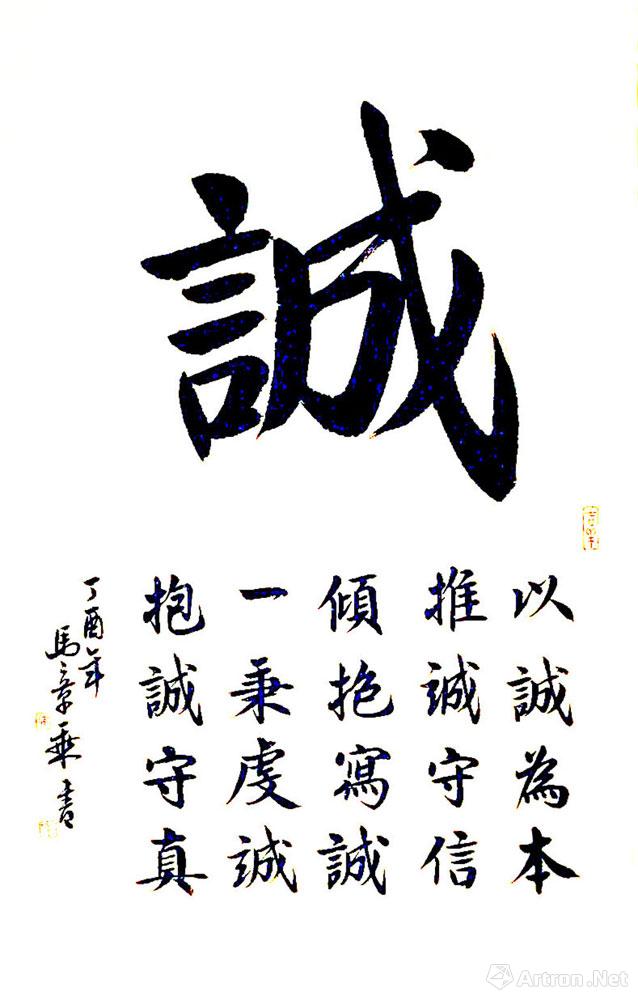 誠
以誠為本
推誠守信
傾抱寫誠
一秉虔誠
抱誠守真
丁酉年
馬章乘書
Artron.Net